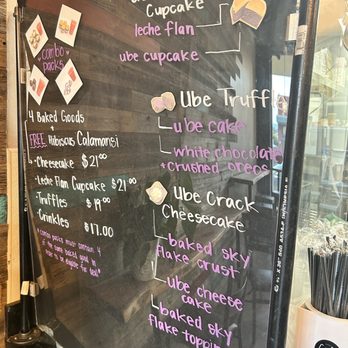 Cupcake
leche flan
ube cupcake
combo
packs
4 Baked Goods
+
FREE Hibiscus Calamansi
- Cheesecake $21.00
- Leche Flan Cupcake $21.00
- Truffles $19.00
- Crinkles $17.00
* combo packs must contain 4
of the same baked good
in order to be eligible for deal *
Ube Truffl
ube cake
white chocolate
+ crushed oreos
Ube Crack
Cheesecake
baked sky
flake crust
ube cheese
cake
baked sky
flake toppin